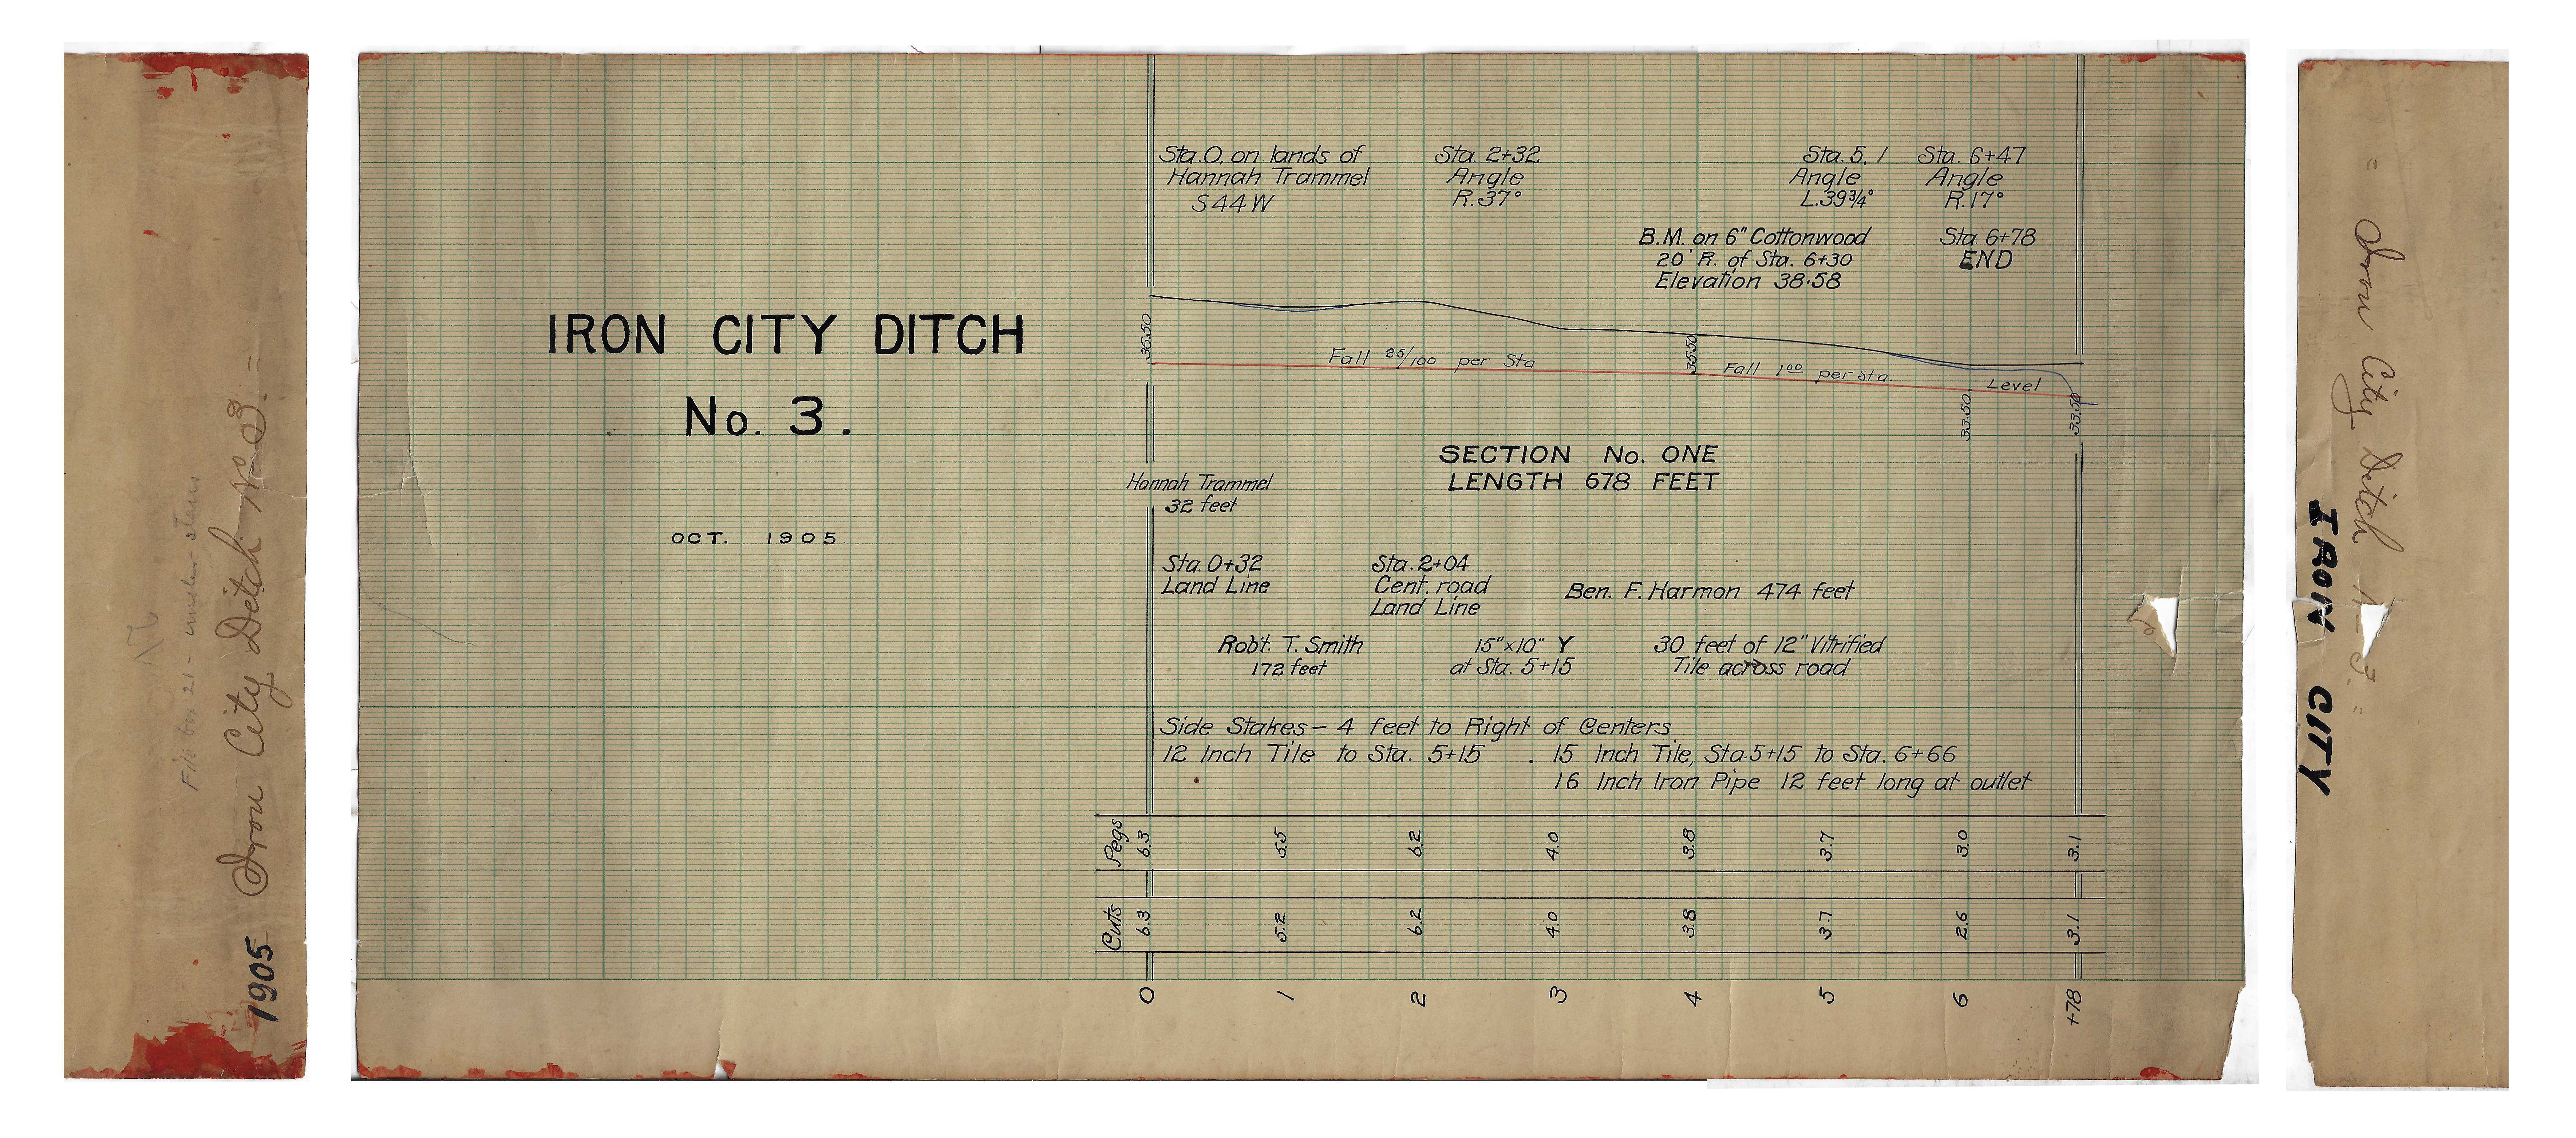 File box 21 - under stairs
1905 Iron City Ditch No 3. =
IRON CITY DITCH
No. 3.
OCT. 1905
Sta. 0, on lands of
Hannah Trammel
S 44 W
Sta. 2+32
Angle
R. 37°
Sta. 5, 1
Angle
L. 39¾°
Sta. 6+47
Angle
R. 17°
B.M. on 6" Cottonwood
20' R. of Sta. 6+30
Elevation 38.58
Sta. 6+78
END
36.50
Fall 25/100 per Sta
35.50
Fall 1.00 per sta.
33.50
Level
33.50
SECTION No. ONE
LENGTH 678 FEET
Hannah Trammel
32 feet
Sta. 0+32
Land Line
Sta. 2+04
Cent. road
Land Line
Ben. F. Harmon 474 feet
Rob't. T. Smith
172 feet
15"x10" Y
at Sta. 5+15
30 feet of 12" Vitrified
Tile across road
Side Stakes – 4 feet to Right of Centers
12 Inch Tile to Sta. 5+15 . 15 Inch Tile, Sta. 5+15 to Sta. 6+66
16 Inch Iron Pipe 12 feet long at outlet
Pegs 6.3 5.5 6.2 4.0 3.8 3.7 3.0 3.1
Cuts 6.3 5.2 6.2 4.0 3.8 3.7 2.6 3.1
0 1 2 3 4 5 6 +78
= Iron City Ditch 3. =
IRON CITY